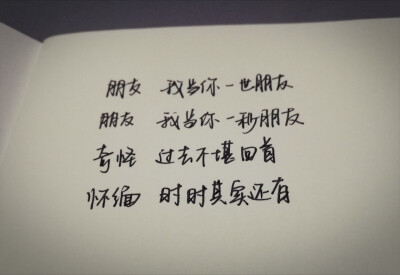 朋友 我当你一世朋友
朋友 我当你一秒朋友
奇怪 过去不堪回首
怀缅 时时其实还有